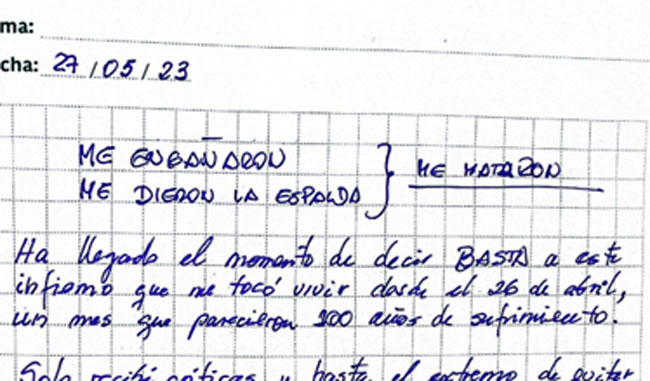 ma:
cha: 27/05/23
ME ENGAÑARON
ME DIERON LA ESPALDA
} ME MATARON
Ha llegado el momento de decir BASTA a este
infierno que me tocó vivir desde el 26 de abril,
un mes que parecieron 100 años de sufrimiento.
Solo recibí críticas y hasta el extremo de quitar